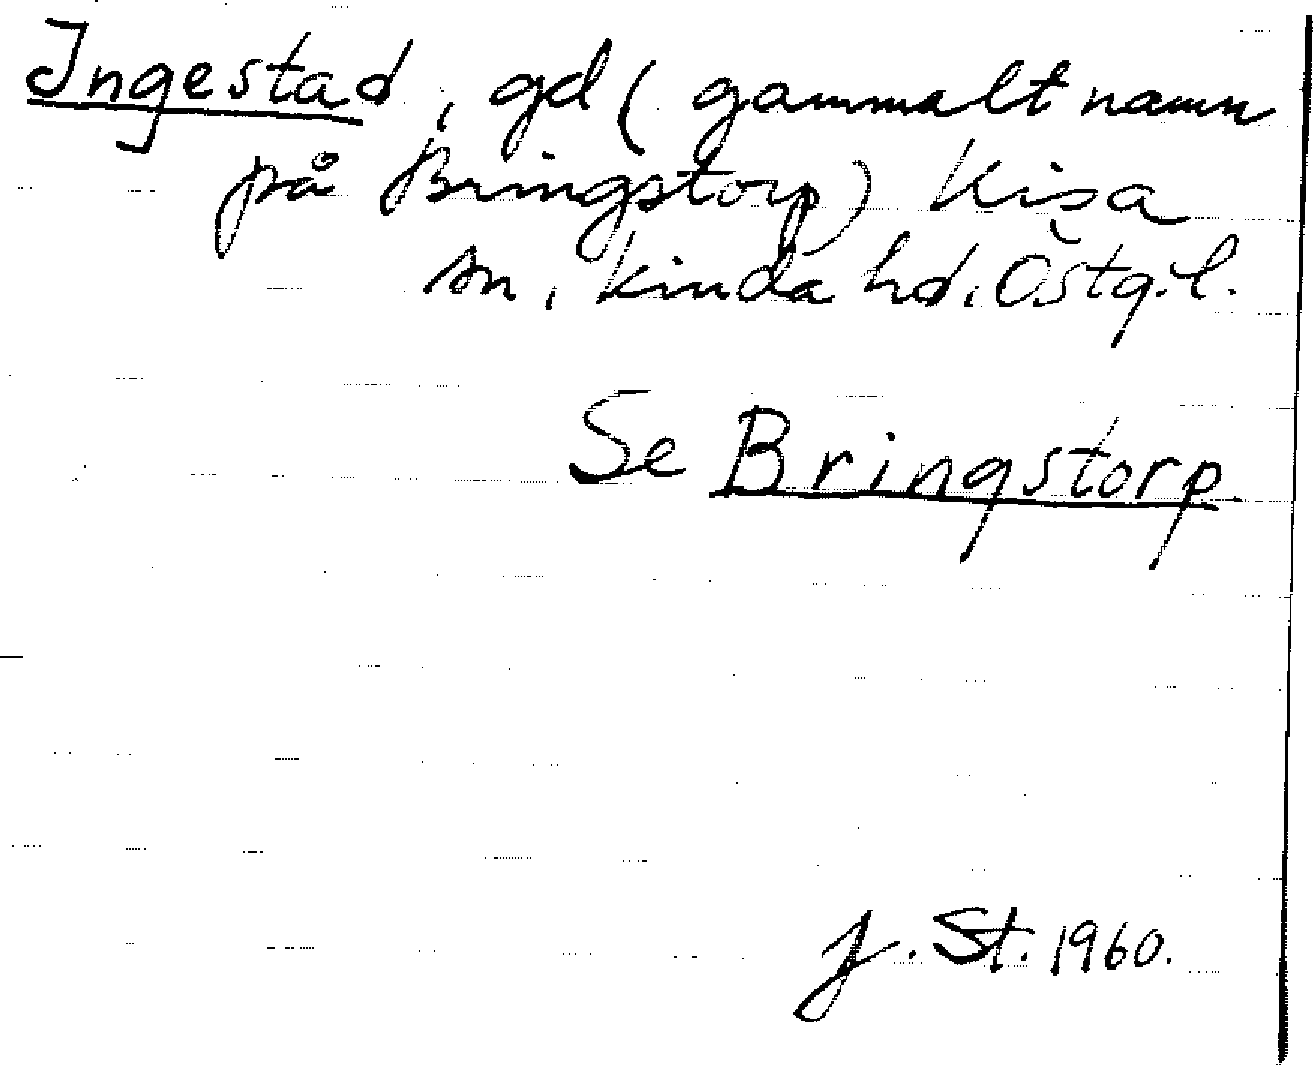 Ingestad, gd (gammalt namn
på Bringstorp) Kisa
sn, Kinda hd. Östg. l.
Se Bringstorp.
J. St. 1960.